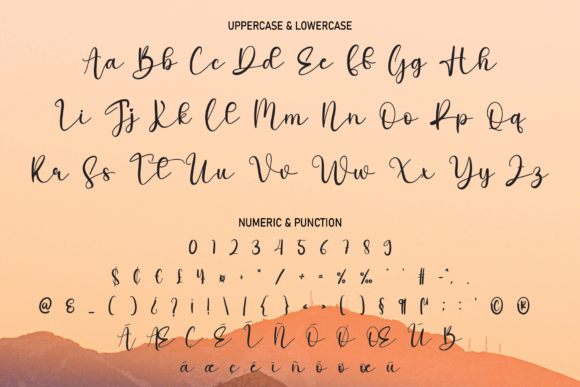 UPPERCASE & LOWERCASE
Aa Bb Cc Dd Ee Ff Gg Hh
Ii Jj Kk Ll Mm Nn Oo Pp Qq
Rr Ss Tt Uu Vv Ww Xx Yy Zz
NUMERIC & PUNCTION
0 1 2 3 4 5 6 7 8 9
$ ¢ € £ ¥ ¤ + * / ÷ = % ‰ " ' # - , .
@ & _ ( ) ¿ ? ¡ ! \ | / { } < > ( ) § ¶ µ ; : ' © ®
Ã Æ Ç É Í Ñ Ó Ø Œ Ú
ã æ ç é í ñ ó ø œ ú